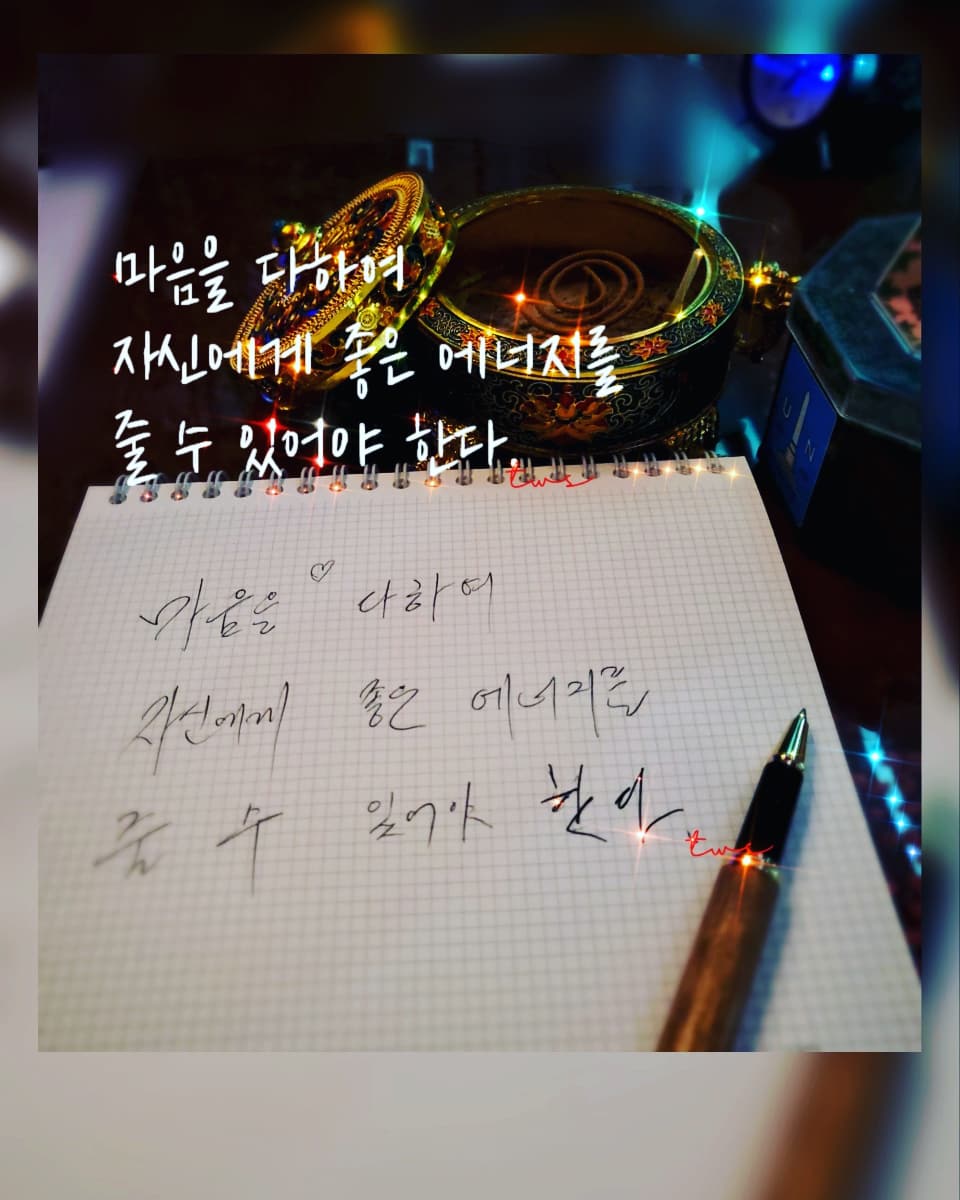 마음을 다하여
자신에게 좋은 에너지를
줄 수 있어야 한다.
tws
UN
마음을 ♡ 다하여
자신에게 좋은 에너지를
줄 수 있어야 한다
tws